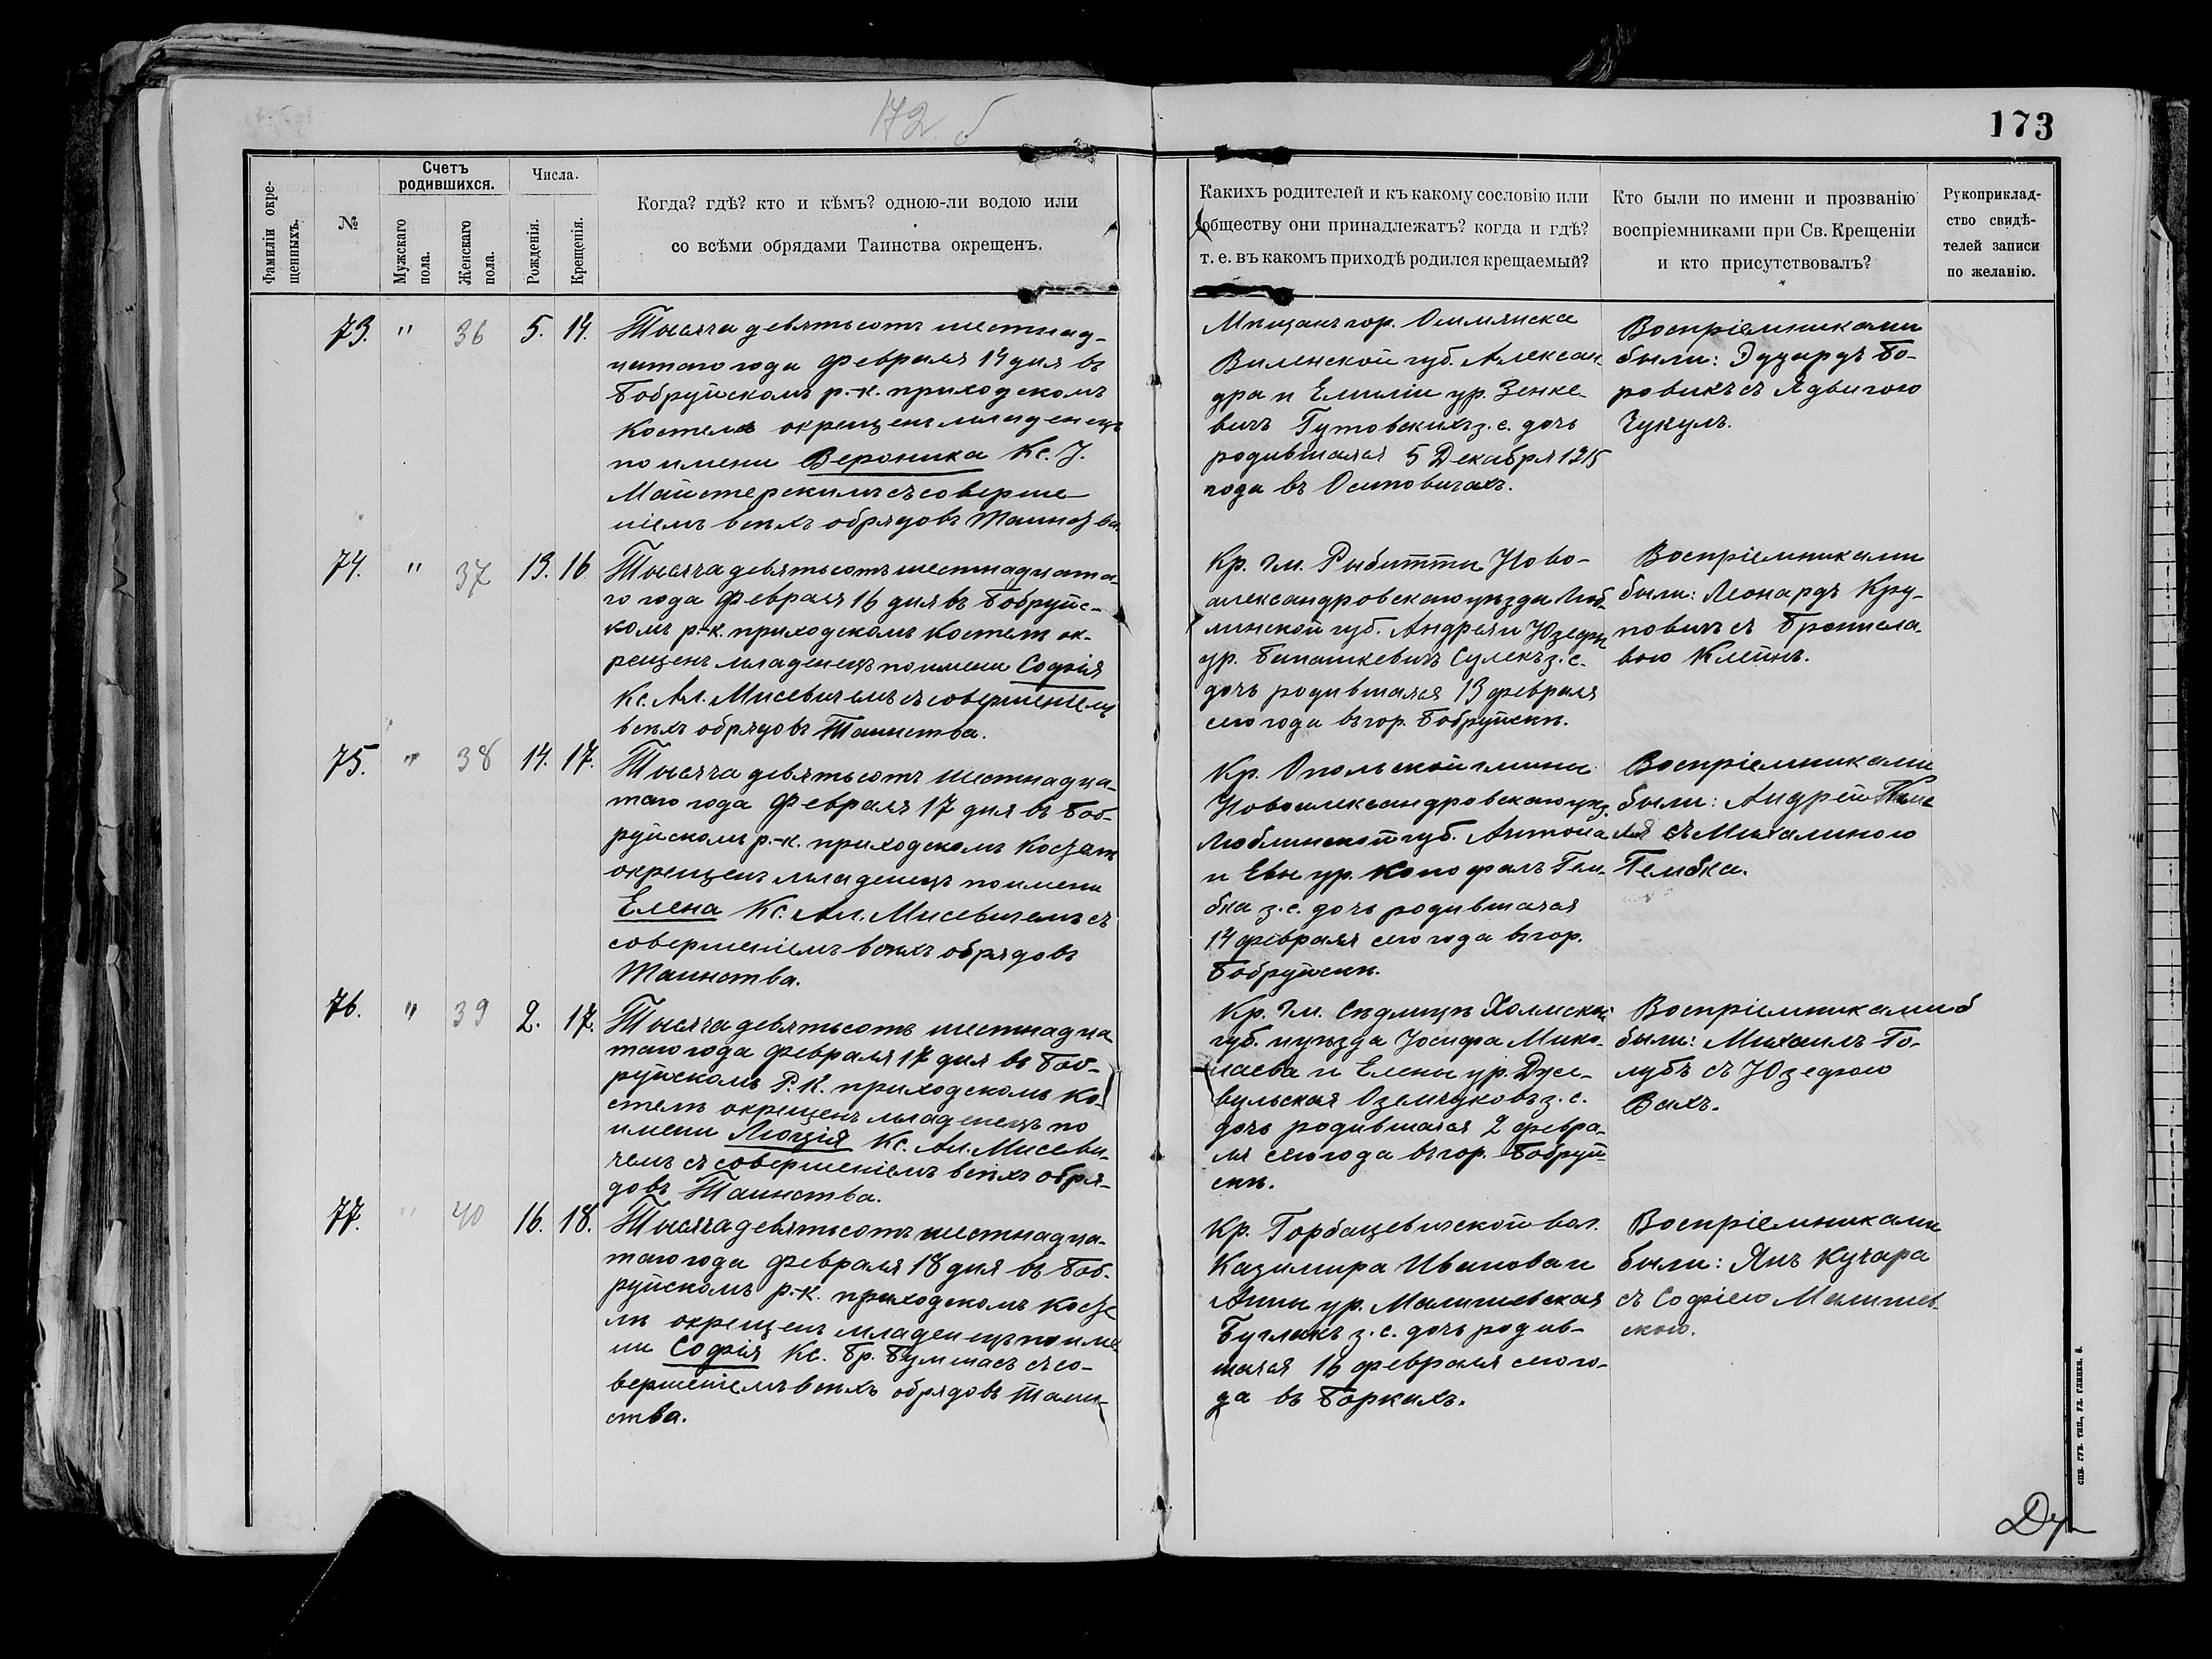 172 б
173
Фамиліи окре-
щенныхъ.
№
Счетъ
родившихся.
Мужскаго
пола.
Женскаго
пола.
Числа.
Рожденія.
Крещенія.
Когда? гдѣ? кто и кѣмъ? одною-ли водою или
со всѣми обрядами Таинства окрещенъ.
Какихъ родителей и къ какому сословію или
обществу они принадлежатъ? когда и гдѣ?
т. е. въ какомъ приходѣ родился крещаемый?
Кто были по имени и прозванію
воспріемниками при Св. Крещеніи
и кто присутствовалъ?
Рукоприклад-
ство свидѣ-
телей записи
по желанію.
73. " 36 5. 14.
Тысяча девятьсотъ шестнад-
цатаго года февраля 14 дня въ
Бобруйскомъ р.-к. приходскомъ
костелѣ окрещенъ младенецъ
по имени Вероника Кс. J.
Майстерскимъ съ соверше-
ніемъ всѣхъ обрядовъ Таинства.
Мѣщанъ гор. Ошмянска
Виленской губ. Алексан-
дра и Емиліи ур. Зенке-
вичъ Гутовскихъ з. с. дочь
родившаяся 5 Декабря 1915
года въ Осиповичахъ.
Воспріемниками
были: Эдуардъ Бо-
ровикъ съ Ядвигою
Чукулъ.
74. " 37 13. 16
Тысяча девятьсотъ шестнадцата-
го года Февраля 16 дня въ Бобруйс-
комъ р.-к. приходскомъ костелѣ ок-
рещенъ младенецъ по имени Софія
Кс. Ал. Мисевичемъ съ совершеніемъ
всѣхъ обрядовъ Таинства.
Кр. гм. Рыбитты Ново-
александровскаго уѣзда Люб-
линской губ. Андрея и Юзефы
ур. Бинашкевичъ Сулекъ з. с.
дочь родившаяся 13 февраля
сего года въ гор. Бобруйскѣ.
Воспріемниками
были: Леонардъ Кру-
повичъ съ Брониcла-
вою Клейнъ.
75. " 38 14. 17.
Тысяча девятьсотъ шестнадца-
таго года Февраля 17 дня въ Боб-
руйскомъ р.-к. приходскомъ костелѣ
окрещенъ младенецъ по имени
Елена Кс. Ал. Мисевичемъ съ
совершеніемъ всѣхъ обрядовъ
Таинства.
Кр. Опольской гмины
Новоалександровскаго уѣз.
Люблинской губ. Антона
и Евы ур. Конофалъ Гем-
бка з. с. дочь родившаяся
14 февраля сего года въ гор.
Бобруйскѣ.
Воспріемниками
были: Андрей
съ Михалиною
Гембка.
76. " 39 2. 17.
Тысяча девятьсотъ шестнадца
таго года февраля 17 дня въ Боб-
руйскомъ Р. К. приходскомъ ко-
стелѣ окрещенъ младенецъ по
имени Люція Кс. Ал. Мисеви-
чемъ съ совершеніемъ всѣхъ обря-
довъ Таинства.
Кр. гм. Сѣдлищѣ Холмской
губ. и уѣзда Іосифа Мико-
лаева и Елены ур.
вульская Оземчуковъ з. с.
дочь родившаяся 2 февра-
ля сего года въ гор. Бобруй-
скѣ.
Воспріемниками
были: Михаилъ Го-
лубъ съ Юзефою
Вахъ.
77. " 40 16. 18.
Тысяча девятьсотъ шестнадца-
таго года февраля 18 дня въ Боб-
руйскомъ р.-к. приходскомъ косте
лѣ окрещенъ младенецъ по име-
ни Софія Кс. Бр. Бумшасъ съ со-
вершеніемъ всѣхъ обрядовъ Таин-
ства.
Кр. Горбацевичской вол.
Казимира Иванова и
Анны ур. Малишевская
Буглакъ з. с. дочь родив-
шаяся 16 февраля сего го-
да въ Боркахъ.
Воспріемниками
были: Янъ Кучара
съ Софіею Малишев
скою.
СПБ. ГУБ. ТИП., УЛ. ГЛИНКИ, 8.